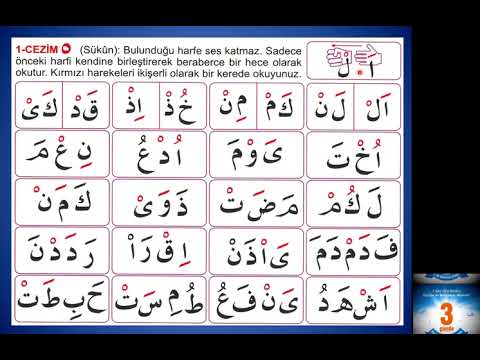 1-CEZİM (Sükûn): Bulunduğu harfe ses katmaz. Sadece
önceki harfi kendine birleştirerek beraberce bir hece olarak
okutur. Kırmızı harekeleri ikişerli olarak bir kerede okuyunuz.
اَ . لْ
اَلْ لَنْ كَمْ مِنْ خُذْ اِذْ قَدْ كَىْ
اُخْتَ ىَوْمَ اُدْعُ نِعْمَ
لَكُمْ مَضَتْ ذَوَىْ كَمَنْ
فَدَمْدَمَ ىَاذَنْ اِقْرَاْ رَدَدْنَ
اَشْهَدُ ىَنْفَعُ طُمِسَتْ حَبِطَتْ
3
günde